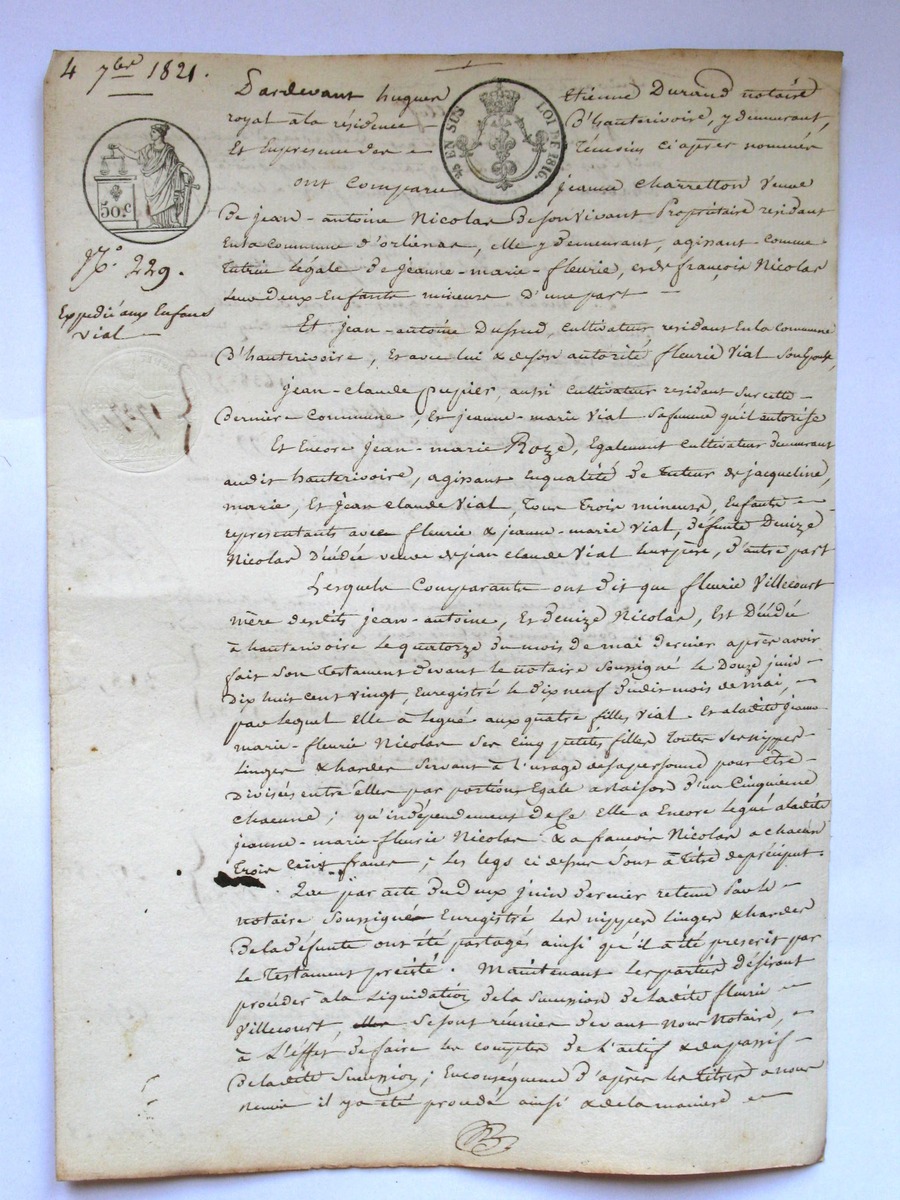 4 7bre 1821.
Pardevant hugues Etienne Durand notaire
royal à la résidence d'hauterivoire, y demeurant,
Et En presence des Témoins ci après nommés
ont Comparu jeanne Charretton veuve
EN SUS LOI DE 1816.
50c
De jean-antoine Nicolas De son vivant Propriétaire residant
En la Commune d'orliénas, elle y demeurant, agissant comme
Tutrice légale de jeanne-marie-fleurie, et de françois Nicolas
Leurs deux Enfants mineurs d'une part
N.º 229.
Expedié aux Enfans
Vial
Et jean-antoine Dussud, Cultivateur residant En la Commune
D'hauterivoire, Et avec lui & de son autorité fleurie Vial Son Epouse,
jean-claude pupier, aussi Cultivateur residant Sur cette
Derniere Commune, Et jeanne-marie Vial Sa femme qu'il autorise
Et Encore jean-marie Roze, Egalement Cultivateur demeurant
audit hauterivoire, agissant En qualité de Tuteur de jacqueline,
marie, Et jean claude Vial, Tous Trois mineurs, Enfants
representants avec fleurie & jeanne-marie Vial, défunte Denize
Nicolas Décédée veuve de jean claude Vial leur père, D'autre part
Lesquels Comparants ont dit que fleurie Villecourt
mère desdits jean-antoine, Et Denize Nicolas, Est Décédée
à hauterivoire Le quatorze du mois de mai Dernier après avoir
fait Son Testament devant le notaire Soussigné le Douze juin
Dix huit cent vingt, Enregistré le Dix neuf Dudit mois de mai,
par lequel Elle à Legué aux quatre filles Vial Et à ladite jeanne
marie-fleurie Nicolas Ses Cinq petites filles Toutes Ses nippes
Linges & hardes Servant à l'usage de sa personne pour être
Divisés entr'elles par portions Egale à raison d'un Cinquieme
chacune; qu'indépendement de Ce Elle a Encore Legué à ladite
jeanne-marie-fleurie Nicolas & a françois Nicolas a chacun
Trois Cent francs; Les legs ci dessus Sont à Titre de préciput.
Que par acte du Deux juin Dernier retenu Par le
notaire Soussigné Enregistré Les nippes linges & hardes
De la Défunte ont été partagés ainsi qu'il a été prescrit par
Le Testament précité. Maintenant Les parties Désirant
procéder à la Liquidation de la Succession de ladite fleurie
Villecourt, Se sont réunies devant Nous Notaire,
à L'éffet de faire les comptes de l'actif & du passif
De ladite Succession; En conséquence d'après les Titres a nous
remis il y a été procédé ainsi & de la maniere